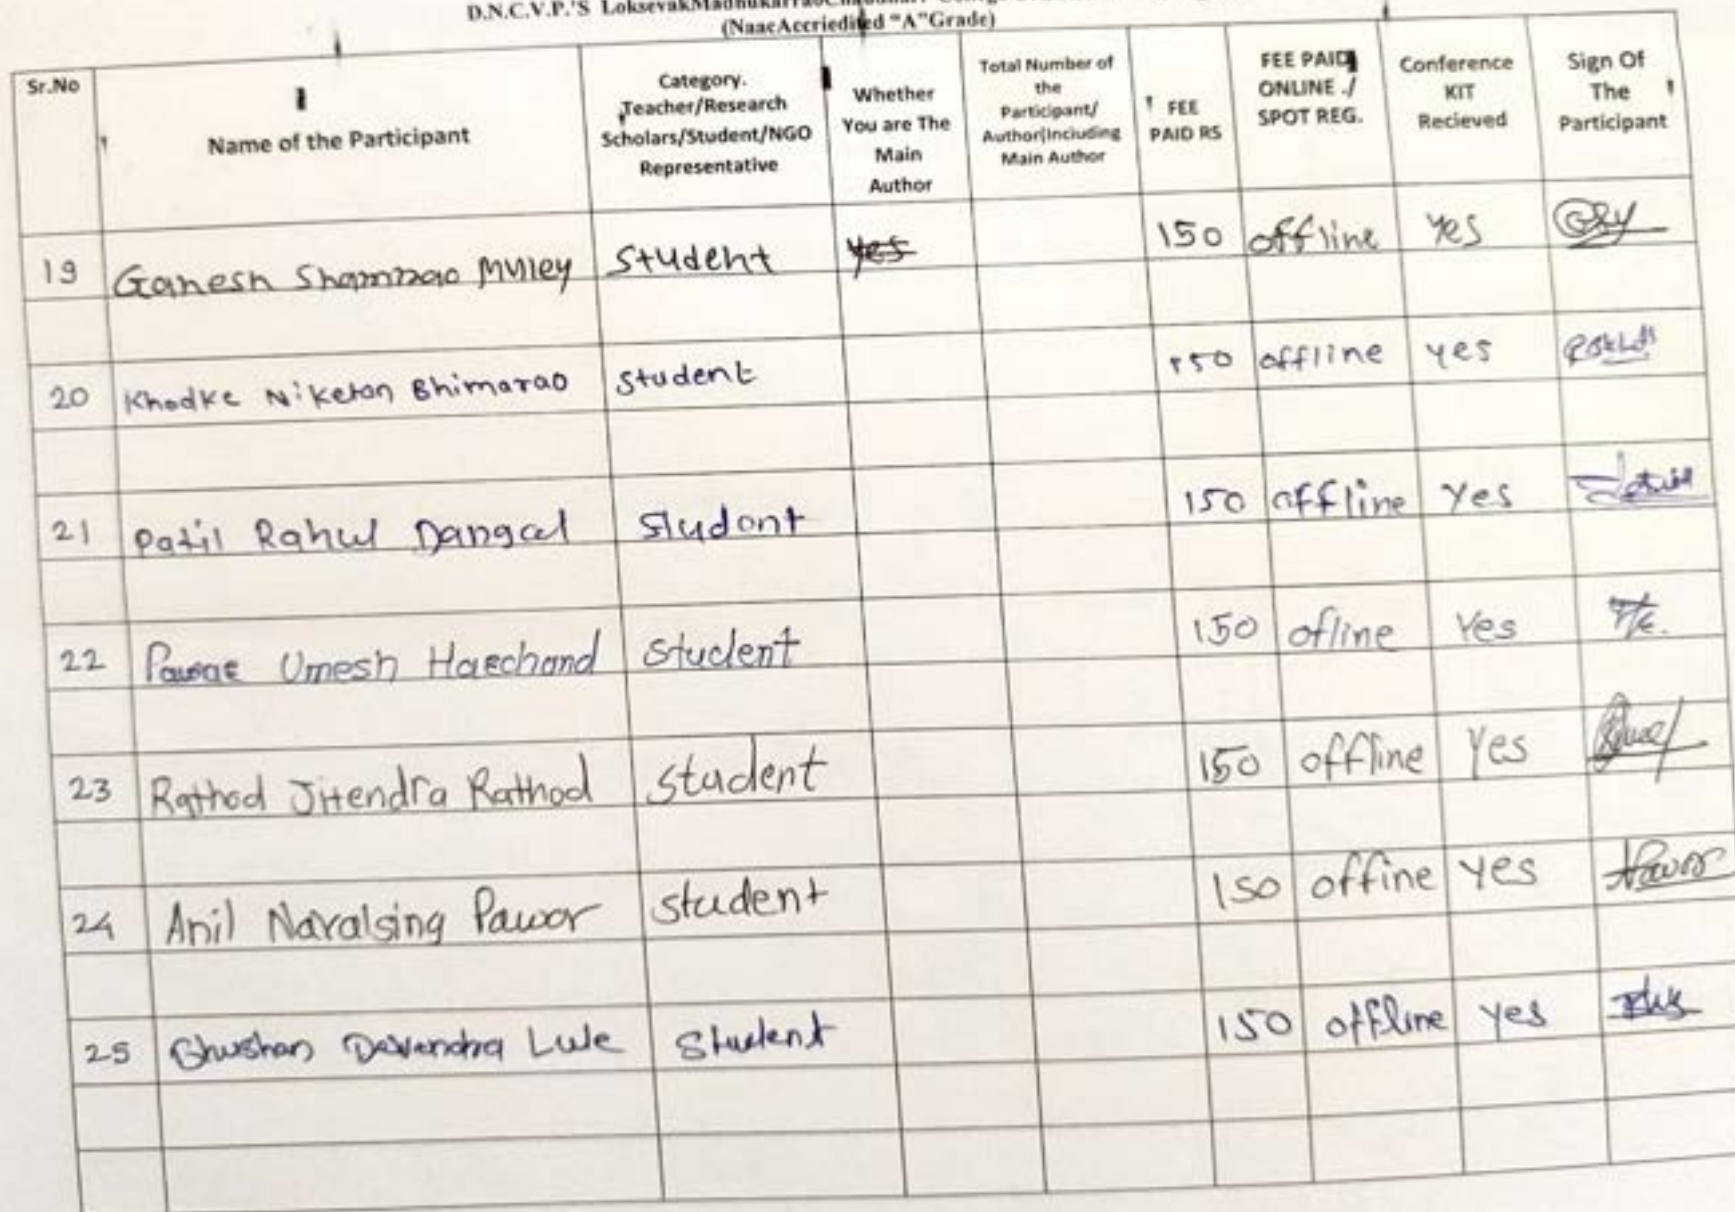 D.N.C.V.P.'S LoksevakMadhukarraoChaudhari College
(NaacAccriedited "A"Grade)
Sr.No
Name of the Participant
Category.
Teacher/Research
Scholars/Student/NGO
Representative
Whether
You are The
Main
Author
Total Number of
the
Participant/
Author(Including
Main Author
FEE
PAID RS
FEE PAID
ONLINE ./
SPOT REG.
Conference
KIT
Recieved
Sign Of
The
Participant
19 Ganesh Shamrao Muley Student yes 150 offline yes
20 Khodke Niketan Bhimarao Student 150 offline yes
21 Patil Rahul Dangal Student 150 offline Yes
22 Pawar Umesh Harchand Student 150 ofline Yes
23 Rathod Jitendra Rathod Student 150 offline Yes
24 Anil Navalsing Pawar Student 150 offine yes
25 Bhushan Devendra Lule Student 150 offline yes